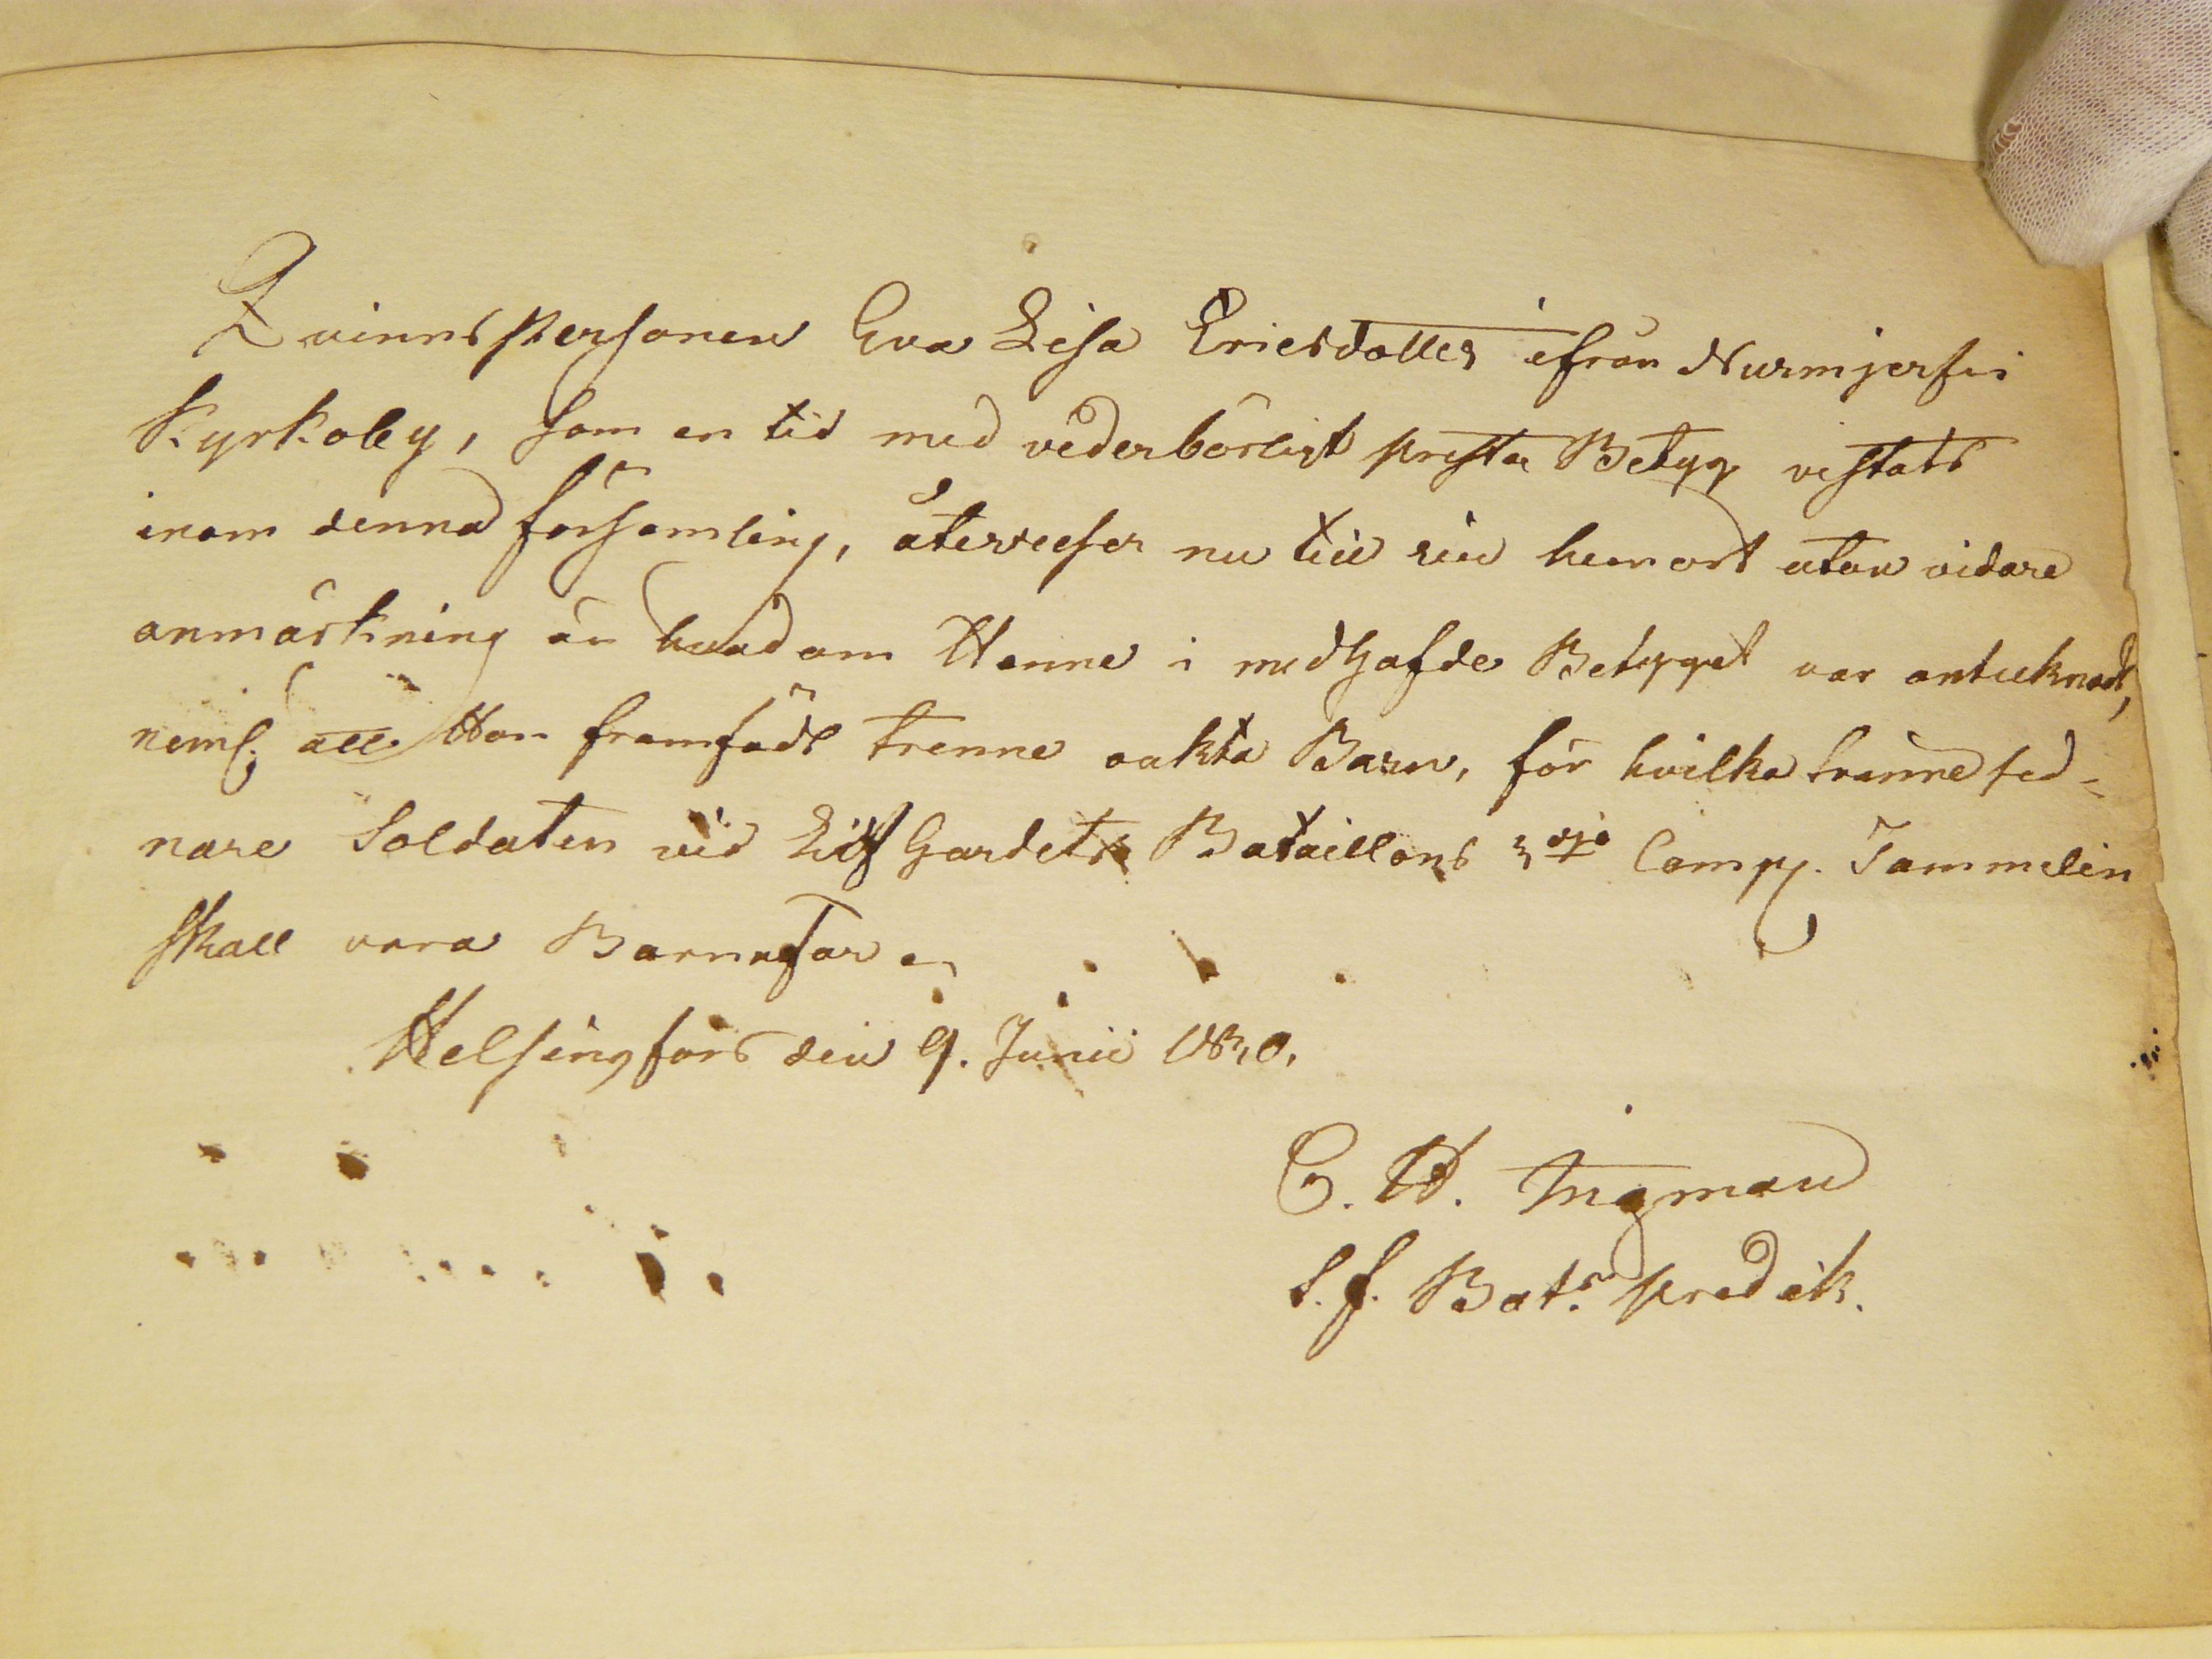 Qvinnspersonen Eva Lisa Ericsdotter ifrån Nurmijerfvi
Kyrkoby, som en tid med vederbörligt prestae Betyg vistats
inom denna församling, återreser nu till sin hemort utan vidare
anmärkning än hvad om Henne i medhafde Betyget var antecknadt,
neml. att Hon framfödt trenne oäkta Barn, för hvilka trenne sed-
nare Soldaten vid Lif Gardets Bataillons 3dje Comp. Tammelin
skall vara Barnafar
Helsingfors den 9. Junii 1830.
C. H. Ingman
t. f. Bats predik.